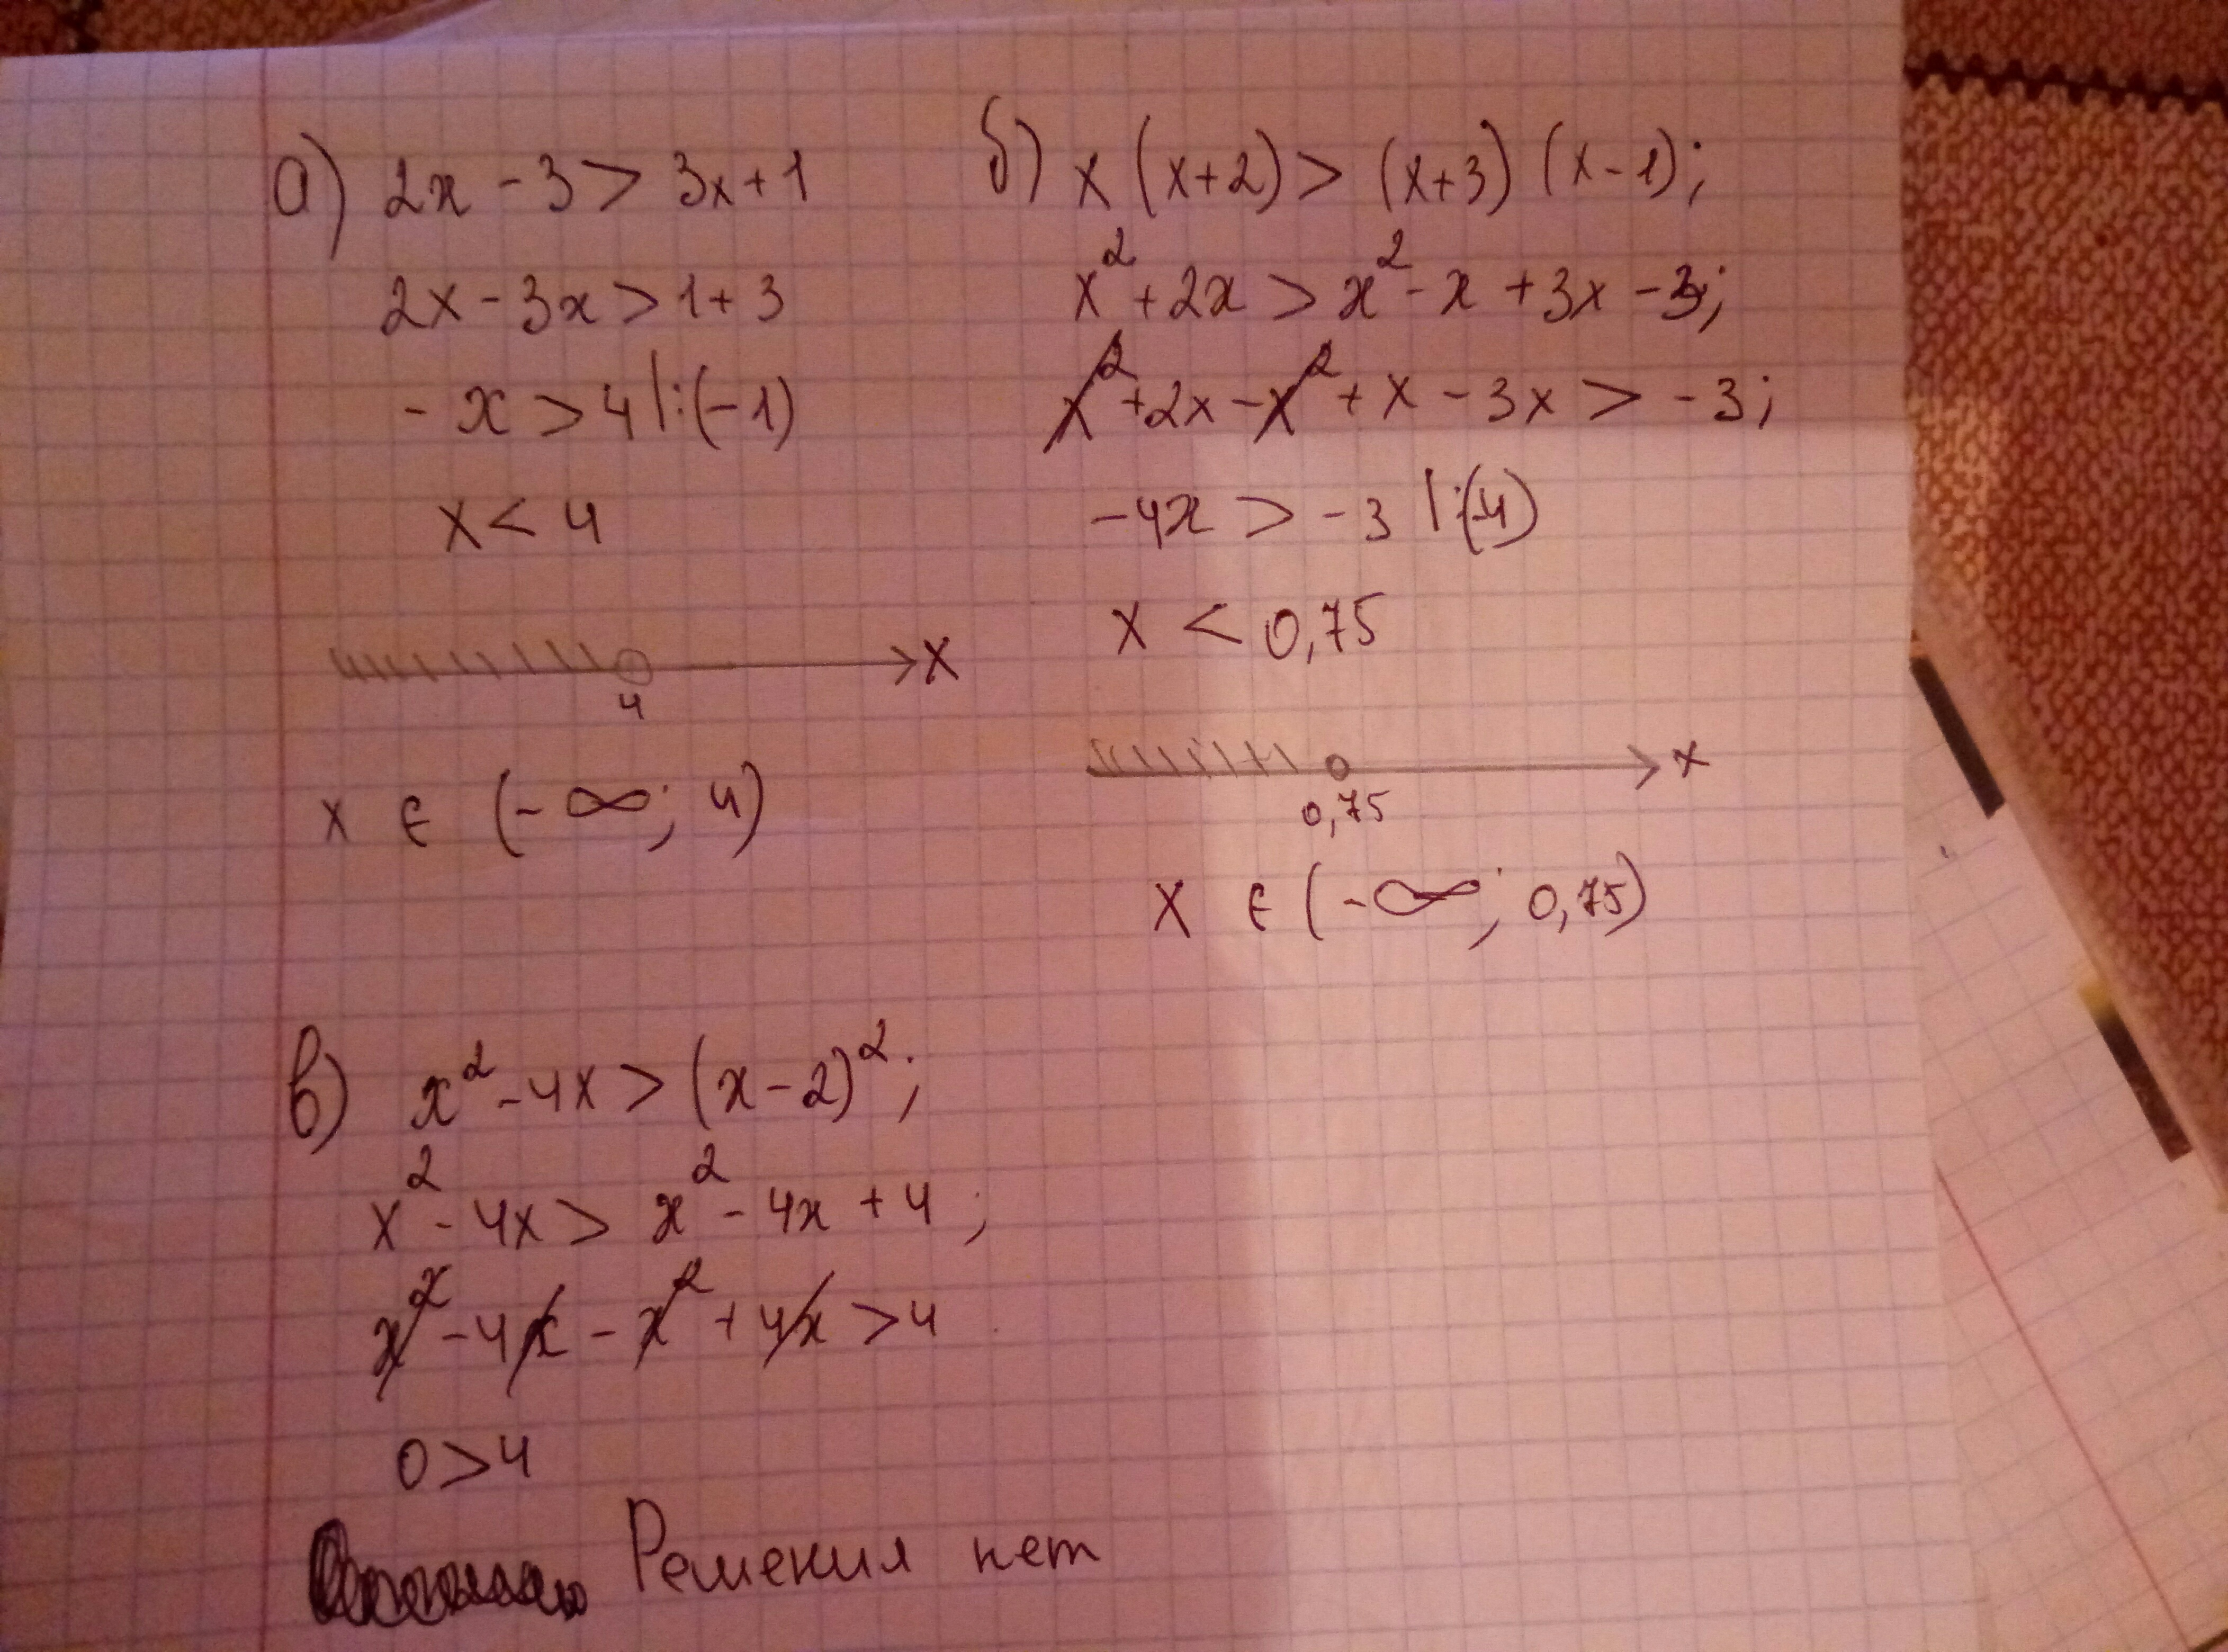 а) 2x - 3 > 3x + 1
2x - 3x > 1 + 3
- x > 4 |:(-1)
x < 4
x
4
x ∈ (-∞; 4)
б) x (x+2) > (x+3) (x-1);
x² + 2x > x² - x + 3x - 3;
x² + 2x - x² + x - 3x > - 3;
-4x > -3 |:(-4)
x < 0,75
x
0,75
x ∈ (-∞; 0,75)
в) x² - 4x > (x-2)²;
x² - 4x > x² - 4x + 4;
x² - 4x - x² + 4x > 4
0 > 4
Решения нет